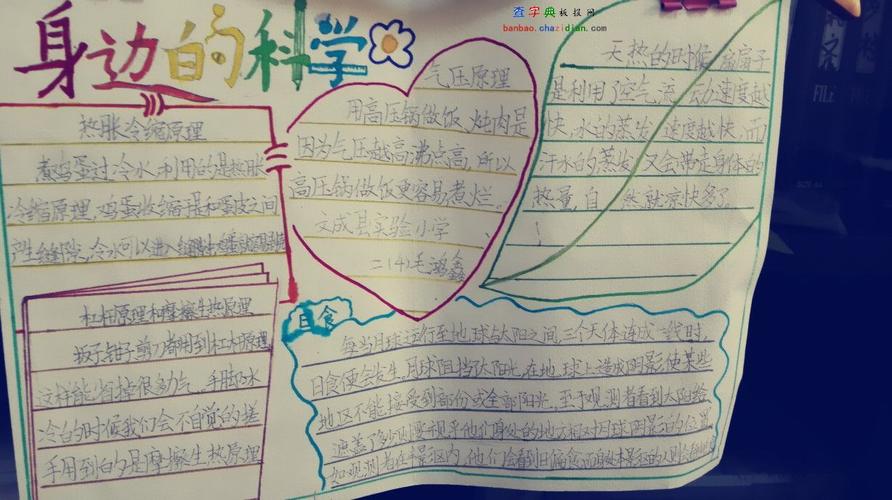 查字典板报网
banbao.chazidian.com
身边的科学
热胀冷缩原理
煮鸡蛋过冷水利用的是热胀
冷缩原理,鸡蛋收缩和蛋皮之间
产生缝隙,冷水可以进入
气压原理
用高压锅做饭、炖肉是
因为气压越高沸点高,所以
高压锅做饭更容易煮烂。
文成县实验小学
二(4)毛鸿鑫
天热的时候,扇扇子
是利用了空气流动速度越
快,水的蒸发速度越快,而
汗水的蒸发又会带走身体的
热量,自然就凉快多了
!
杠杆原理和摩擦生热原理
扳子钳子剪刀都用到杠杆原理
这样能省掉很多力气,手脚冰
冷的时候我们会不自觉的搓
手用到的是摩擦生热原理
日食
每当月球运行至地球与太阳之间,三个天体连成一线时,
日食便会发生,月球阻挡太阳光,在地球上造成阴影,使某些
地区不能接受到部份或全部阳光,至于观测者看到太阳给
遮盖了多少则要视乎他们身处的地方相对月球阴影的位置
如观测者在半影区内,他们会看到日偏食而身处本影区的人则会